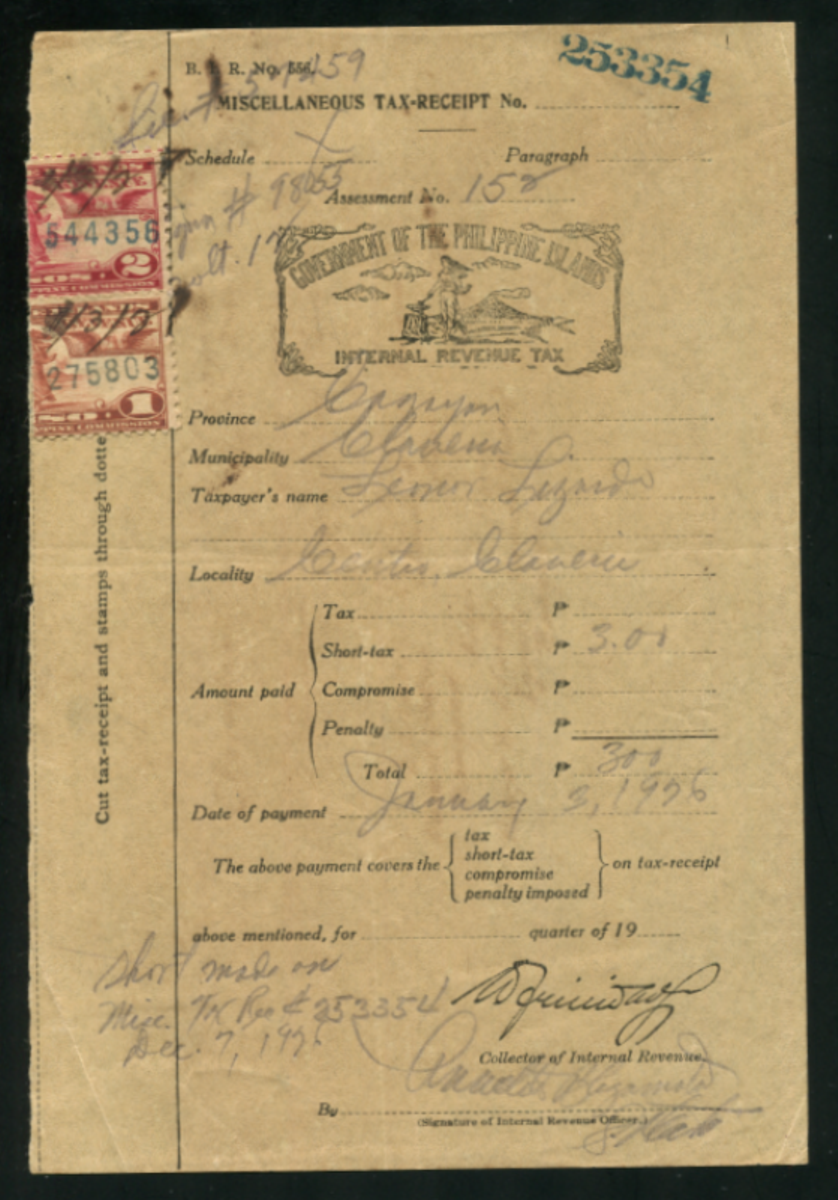 253354
B. I. R. No. 556.
MISCELLANEOUS TAX-RECEIPT No.
Schedule X Paragraph
# 98655
Assessment No. 158
544356
NOS. 2
PINE COMMISSION
275803
NO. 1
PINE COMMISSION
GOVERNMENT OF THE PHILIPPINE ISLANDS
INTERNAL REVENUE TAX
Province Cagayan
Municipality Claveria
Taxpayer's name Leonor Lizardo
Locality Centro, Claveria
Cut tax-receipt and stamps through dotte
Amount paid
Tax ₱
Short-tax ₱ 3.00
Compromise ₱
Penalty ₱
Total ₱ 300
Date of payment January 3, 1926
The above payment covers the
tax
short-tax
compromise
penalty imposed
on tax-receipt
above mentioned, for quarter of 19
short made on
Misc. Tax Rec # 253354
Dec. 7, 192
Collector of Internal Revenue.
By
(Signature of Internal Revenue Officer.)